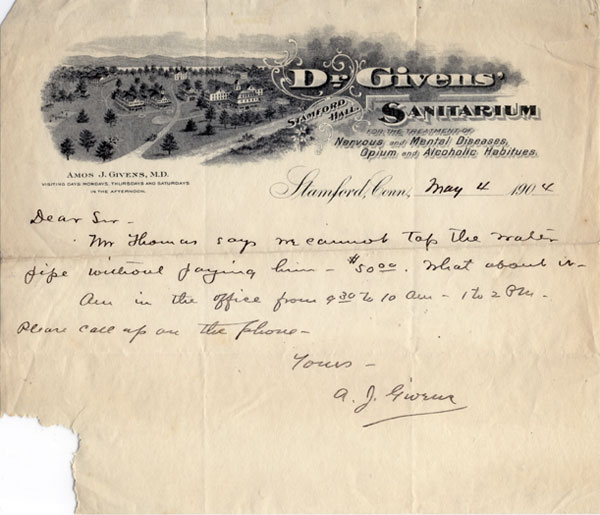 Dr Givens'
Stamford Hall.
Sanitarium
FOR THE TREATMENT OF
Nervous and Mental Diseases,
Opium and Alcoholic Habitues.
AMOS J. GIVENS, M.D.
VISITING DAYS MONDAYS, THURSDAYS AND SATURDAYS
IN THE AFTERNOON.
Stamford, Conn., May 4 1904
Dear Sir -
Mr Thomas says we cannot tap the water
pipe without paying him - $50.00. What about it -
Am in the office from 9 30 to 10 Am - 1 to 2 PM -
Please call up on the phone -
Yours -
A. J. Givens